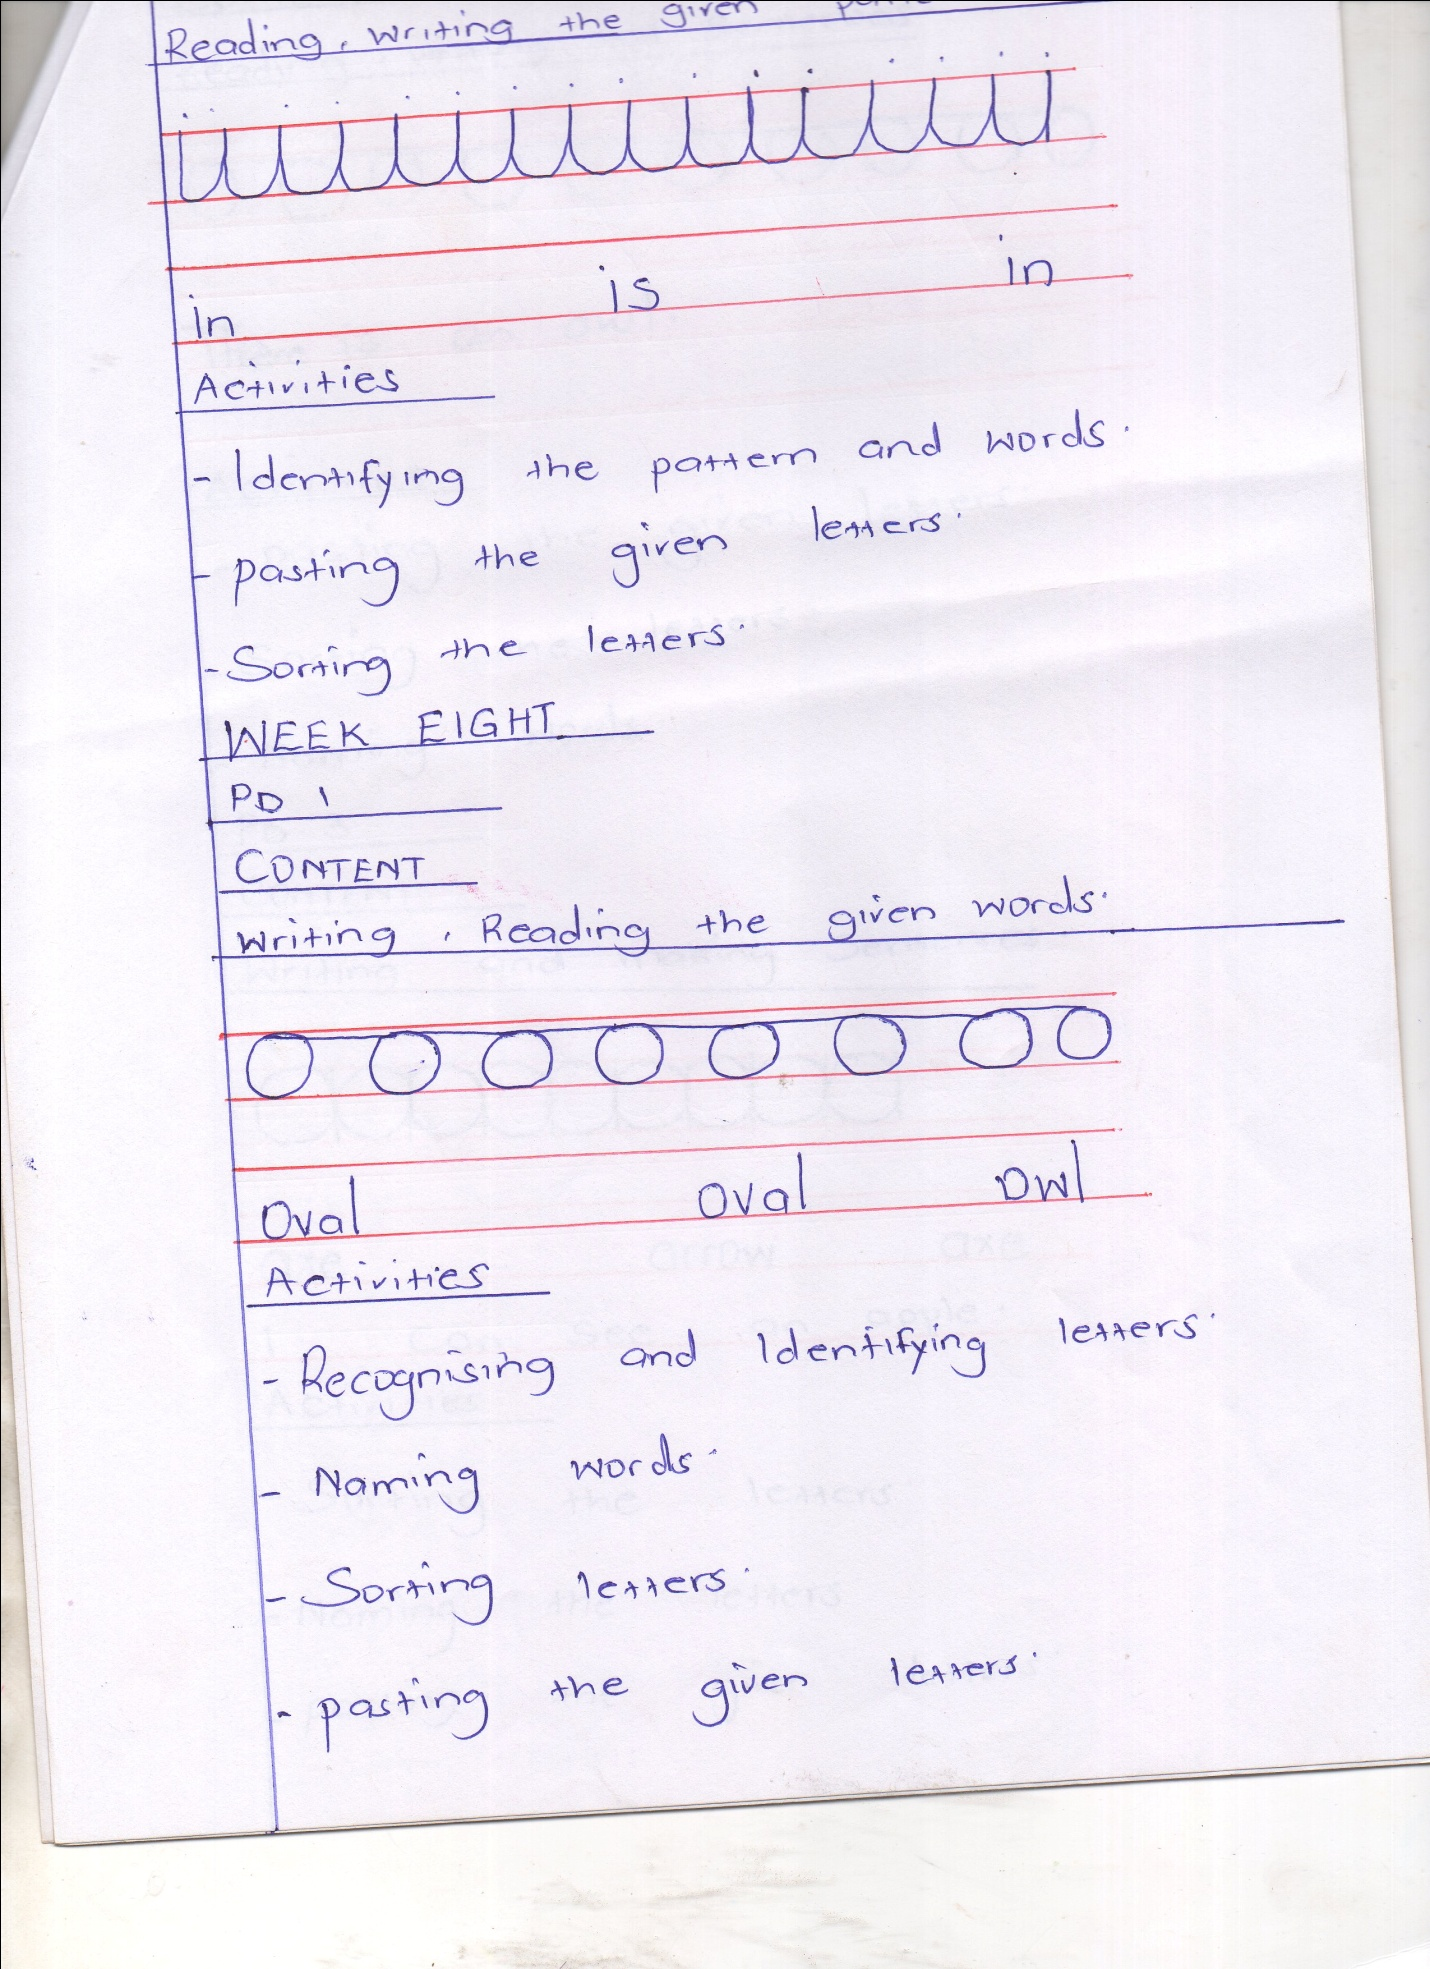 Reading, Writing the given
in is in
Activities
- Identifying the pattern and words.
- pasting the given letters.
- Sorting the letters.
WEEK EIGHT
PD 1
CONTENT
Writing, Reading the given words.
Oval Oval Owl
Activities
- Recognising and Identifying letters.
- Naming words.
- Sorting letters.
- pasting the given letters.